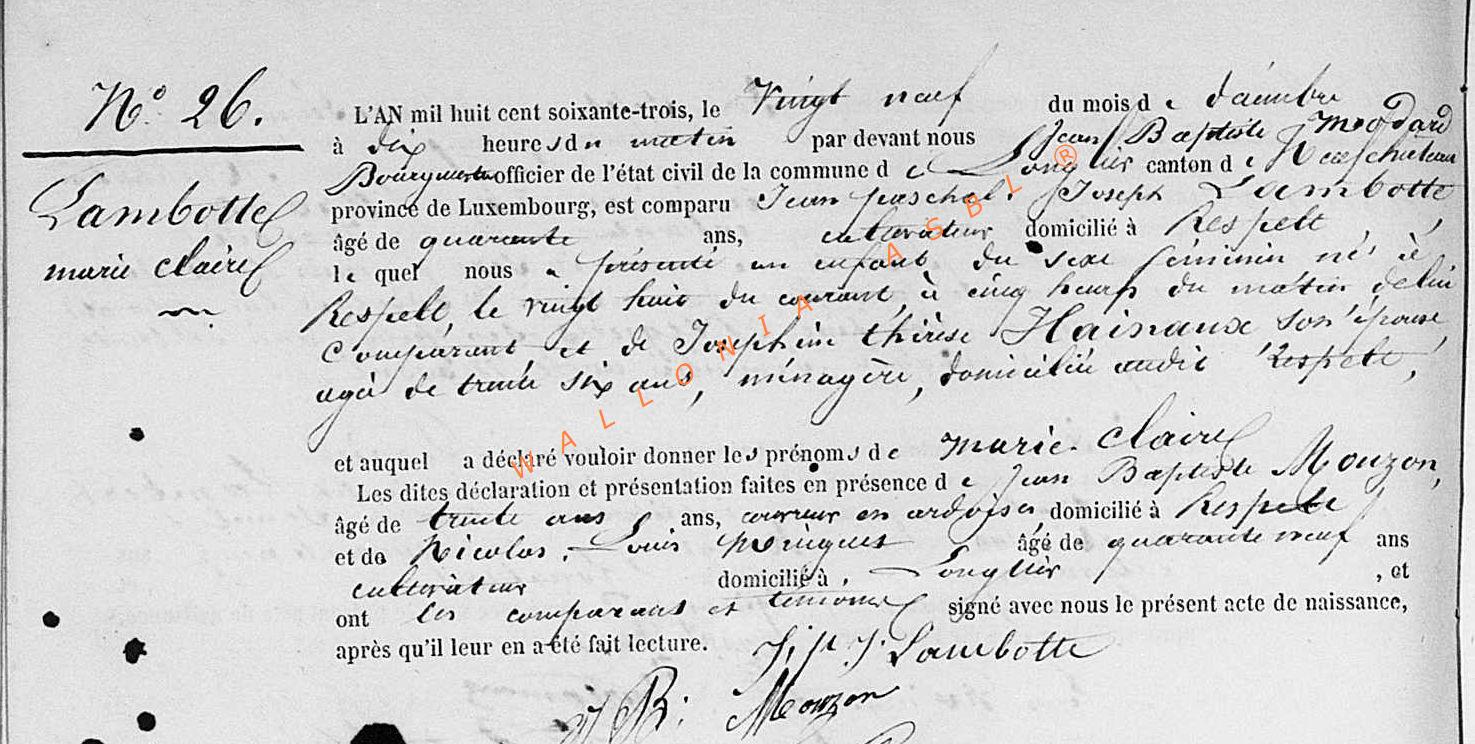 N° 26.
Lambotte
marie claire
L'AN mil huit cent soixante-trois, le Vingt neuf du mois de décembre
à dix heures du matin par devant nous Jean Baptiste Modard
Bourgmestre officier de l'état civil de la commune de Longlier canton de Neufchateau
province de Luxembourg, est comparu Jean paschal Joseph Lambotte
âgé de quarante ans, cultivateur domicilié à Respelt,
lequel nous a présenté un enfant du sexe féminin né à
Respelt, le vingt huit du courant, à cinq heures du matin, de lui
Comparant et de Joséphine thérèse Hainaux son épouse
agée de trente six ans, ménagère, domiciliée audit Respelt,
et auquel a déclaré vouloir donner les prénoms de Marie-Claire
Les dites déclaration et présentation faites en présence de Jean Baptiste Mouzon,
âgé de trente ans ans, couvreur en ardoises domicilié à Respelt
et de Nicolas, Louis âgé de quarante neuf ans
cultivateur domicilié à Longlier, et
ont les comparans et temoins signé avec nous le présent acte de naissance,
après qu'il leur en a été fait lecture. J. p J. Lambotte
J B. Mouzon
WALLONIA ASBL ®